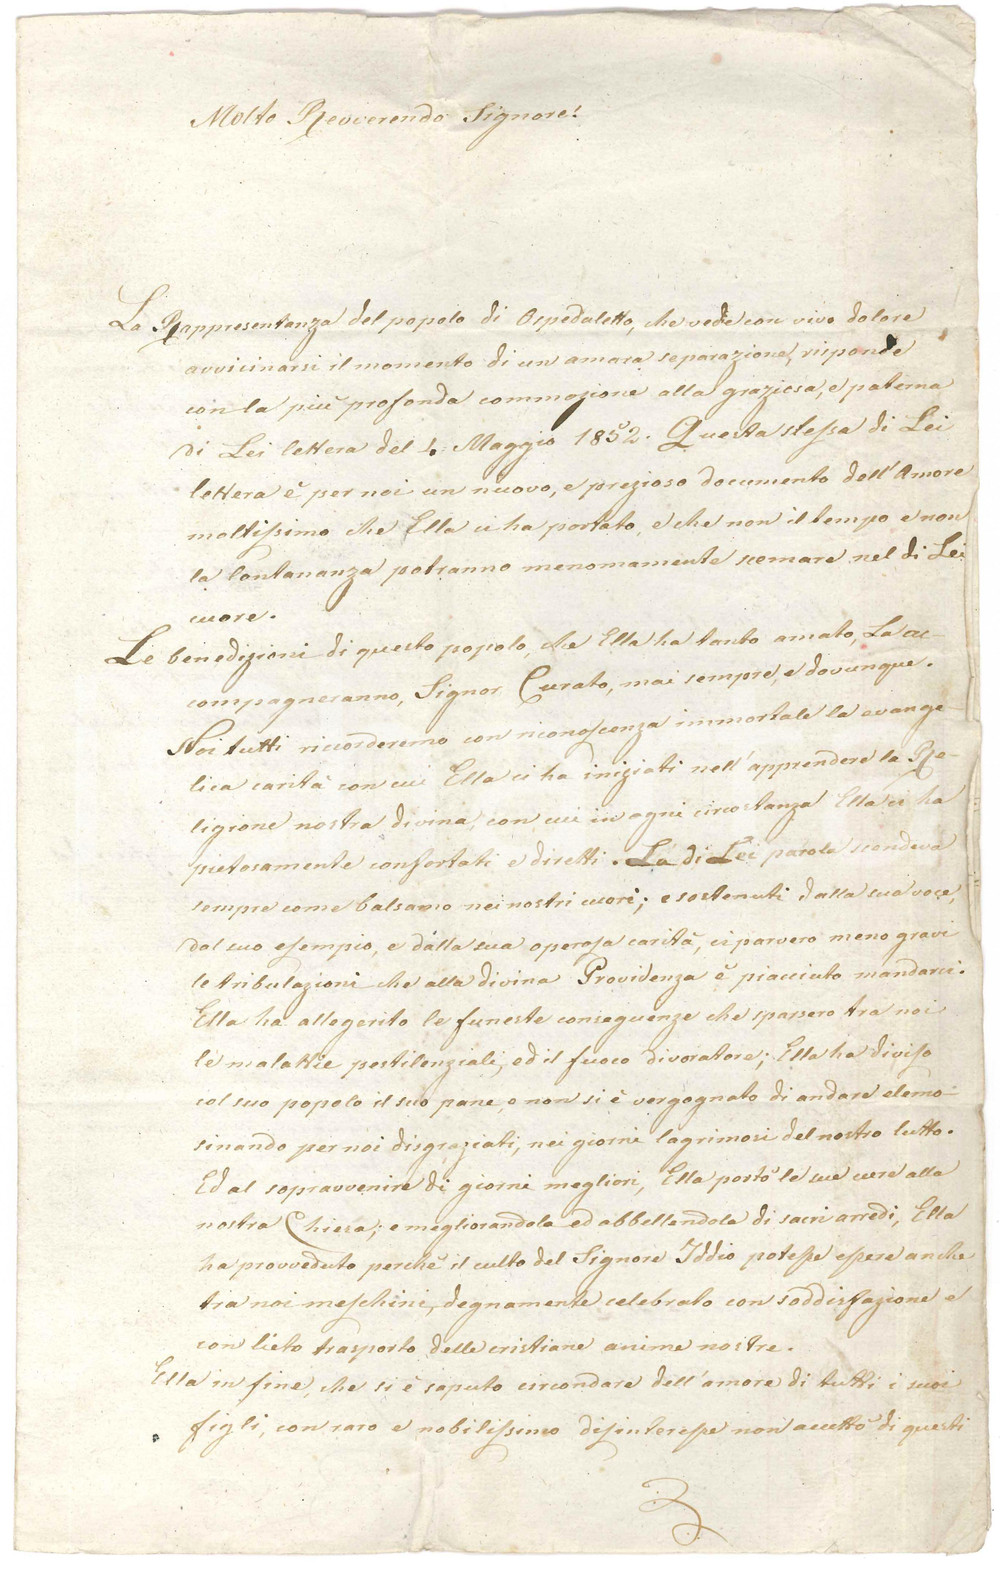 Molto Revverendo Signore!
La Rappresentanza del popolo di Ospedaletto, che vede con vivo dolore
avvicinarsi il momento di un amara separazione, risponde
con la più profonda commozione alla graziosa, e paterna
di Lei lettera del 4. Maggio 1852. Questa stessa di Lei
lettera è per noi un nuovo, e prezioso documento dell'Amore
moltissimo che Ella ci ha portato, e che non il tempo e non
la lontananza potranno menomamente scemare nel di Lei
cuore.
Le benedizioni di questo popolo, che Ella ha tanto amato, La ac-
compagneranno, Signor Curato, mai sempre, e dovunque.
Noi tutti riccorderemo con riconoscenza immortale la evange-
lica carità con cui Ella ci ha iniziati nell'apprendere la Re-
ligione nostra divina, con cui in ogni circostanza Ella ci ha
pietosamente confortati e diretti. La di Lei parola scendeva
sempre come balsamo nei nostri cuori; e sostenuti dalla sua voce,
dal suo esempio, e dalla sua operosa carità, ci parvero meno gravi
le tribulazioni che alla divina Providenza è piacciuto mandarci.
Ella ha allegerito le funeste conseguenze che sparsero tra noi
le malattie pestilenziali, ed il fuoco divoratore; Ella ha diviso
col suo popolo il suo pane, e non si è vergognato di andare elemo-
sinando per noi disgraziati, nei giorni lagrimosi del nostro lutto.
Ed al sopravvenire di giorni megliori, Ella portò le sue cure alla
nostra Chiesa; e megliorandola ed abbellendola di sacri arredi, Ella
ha provveduto perchè il culto del Signore Iddio potesse essere anche
tra noi meschini, degnamente celebrato con soddisfazione e
con lieto trasporto delle cristiane anime nostre.
Ella in fine, che si è saputo circondare dell'amore di tutti i suoi
figli, con raro e nobilissimo disinteresse non accettò di questi